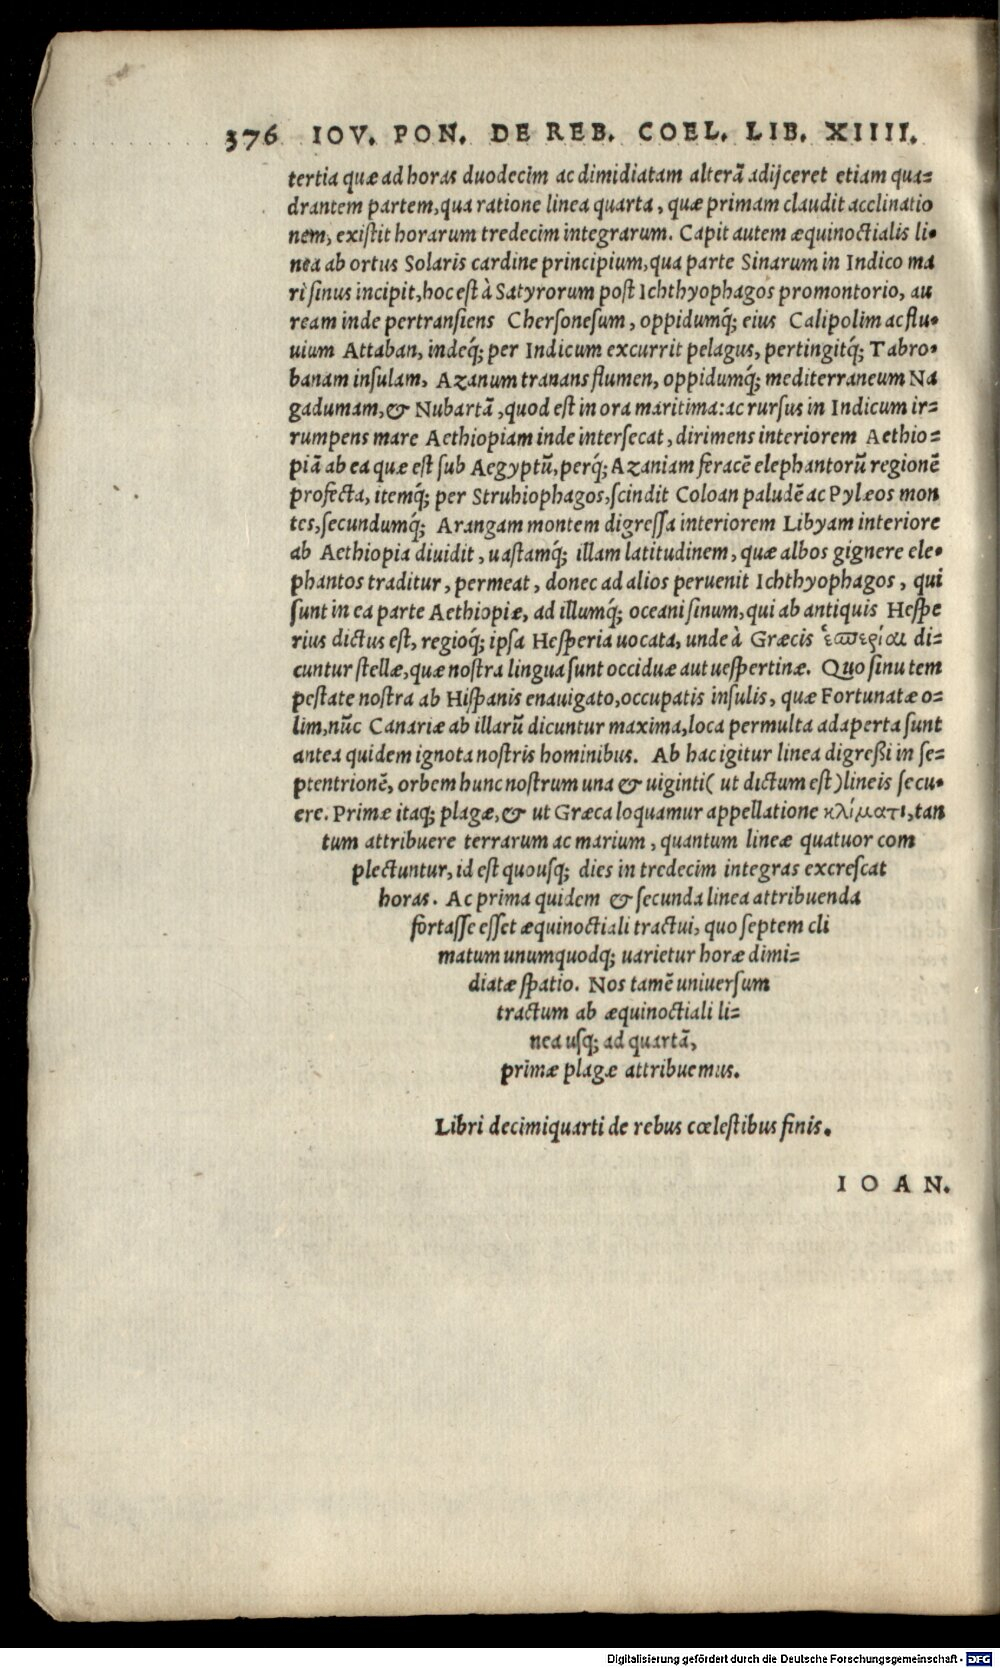 376 IOV. PON. DE REB. COEL. LIB. XIIII.
tertia quæ ad horas duodecim ac dimidiatam alterã adijceret etiam qua=
drantem partem, qua ratione linea quarta, quæ primam claudit acclinatio
nem, existit horarum tredecim integrarum. Capit autem æquinoctialis li•
nea ab ortus Solaris cardine principium, qua parte Sinarum in Indico ma
ri sinus incipit, hoc est à Satyrorum post Ichthyophagos promontorio, au
ream inde pertransiens Chersonesum, oppidumq́; eius Calipolim ac flu•
uium Attaban, indeq́; per Indicum excurrit pelagus, pertingitq́; Tabro•
banam insulam, Azanum tranans flumen, oppidumq́; mediterraneum Na
gadumam, & Nubartã, quod est in ora maritima: ac rursus in Indicum ir=
rumpens mare Aethiopiam inde intersecat, dirimens interiorem Aethio=
piã ab ea quæ est sub Aegyptũ, perq́; Azaniam feracẽ elephantorũ regionẽ
profecta, itemq́; per Struhiophagos, scindit Coloan paludẽ ac Pylæos mon
tes, secundumq́; Arangam montem digressa interiorem Libyam interiore
ab Aethiopia diuidit, uastamq́; illam latitudinem, quæ albos gignere ele•
phantos traditur, permeat, donec ad alios peruenit Ichthyophagos, qui
sunt in ea parte Aethiopiæ, ad illumq́; oceani sinum, qui ab antiquis Hespe
rius dictus est, regioq́; ipsa Hesperia uocata, unde à Græcis ἑσπερίαι di=
cuntur stellæ, quæ nostra lingua sunt occiduæ aut uespertinæ. Quo sinu tem
pestate nostra ab Hispanis enauigato, occupatis insulis, quæ Fortunatæ o=
lim, nũc Canariæ ab illarũ dicuntur maxima, loca permulta adaperta sunt
antea quidem ignota nostris hominibus. Ab hac igitur linea digreßi in se=
ptentrionẽ, orbem hunc nostrum una & uiginti (ut dictum est) lineis secu•
ere. Primæ itaq; plagæ, & ut Græca loquamur appellatione κλίματι, tan
tum attribuere terrarum ac marium, quantum lineæ quatuor com
plectuntur, id est quousq; dies in tredecim integras excrescat
horas. Ac prima quidem & secunda linea attribuenda
fortasse esset æquinoctiali tractui, quo septem cli
matum unumquodq; uarietur horæ dimi=
diatæ spatio. Nos tamẽ uniuersum
tractum ab æquinoctiali li=
nea usq; ad quartã,
primæ plagæ attribuemus.
Libri decimiquarti de rebus cœlestibus finis.
IOAN.
Digitalisierung gefördert durch die Deutsche Forschungsgemeinschaft - DFG